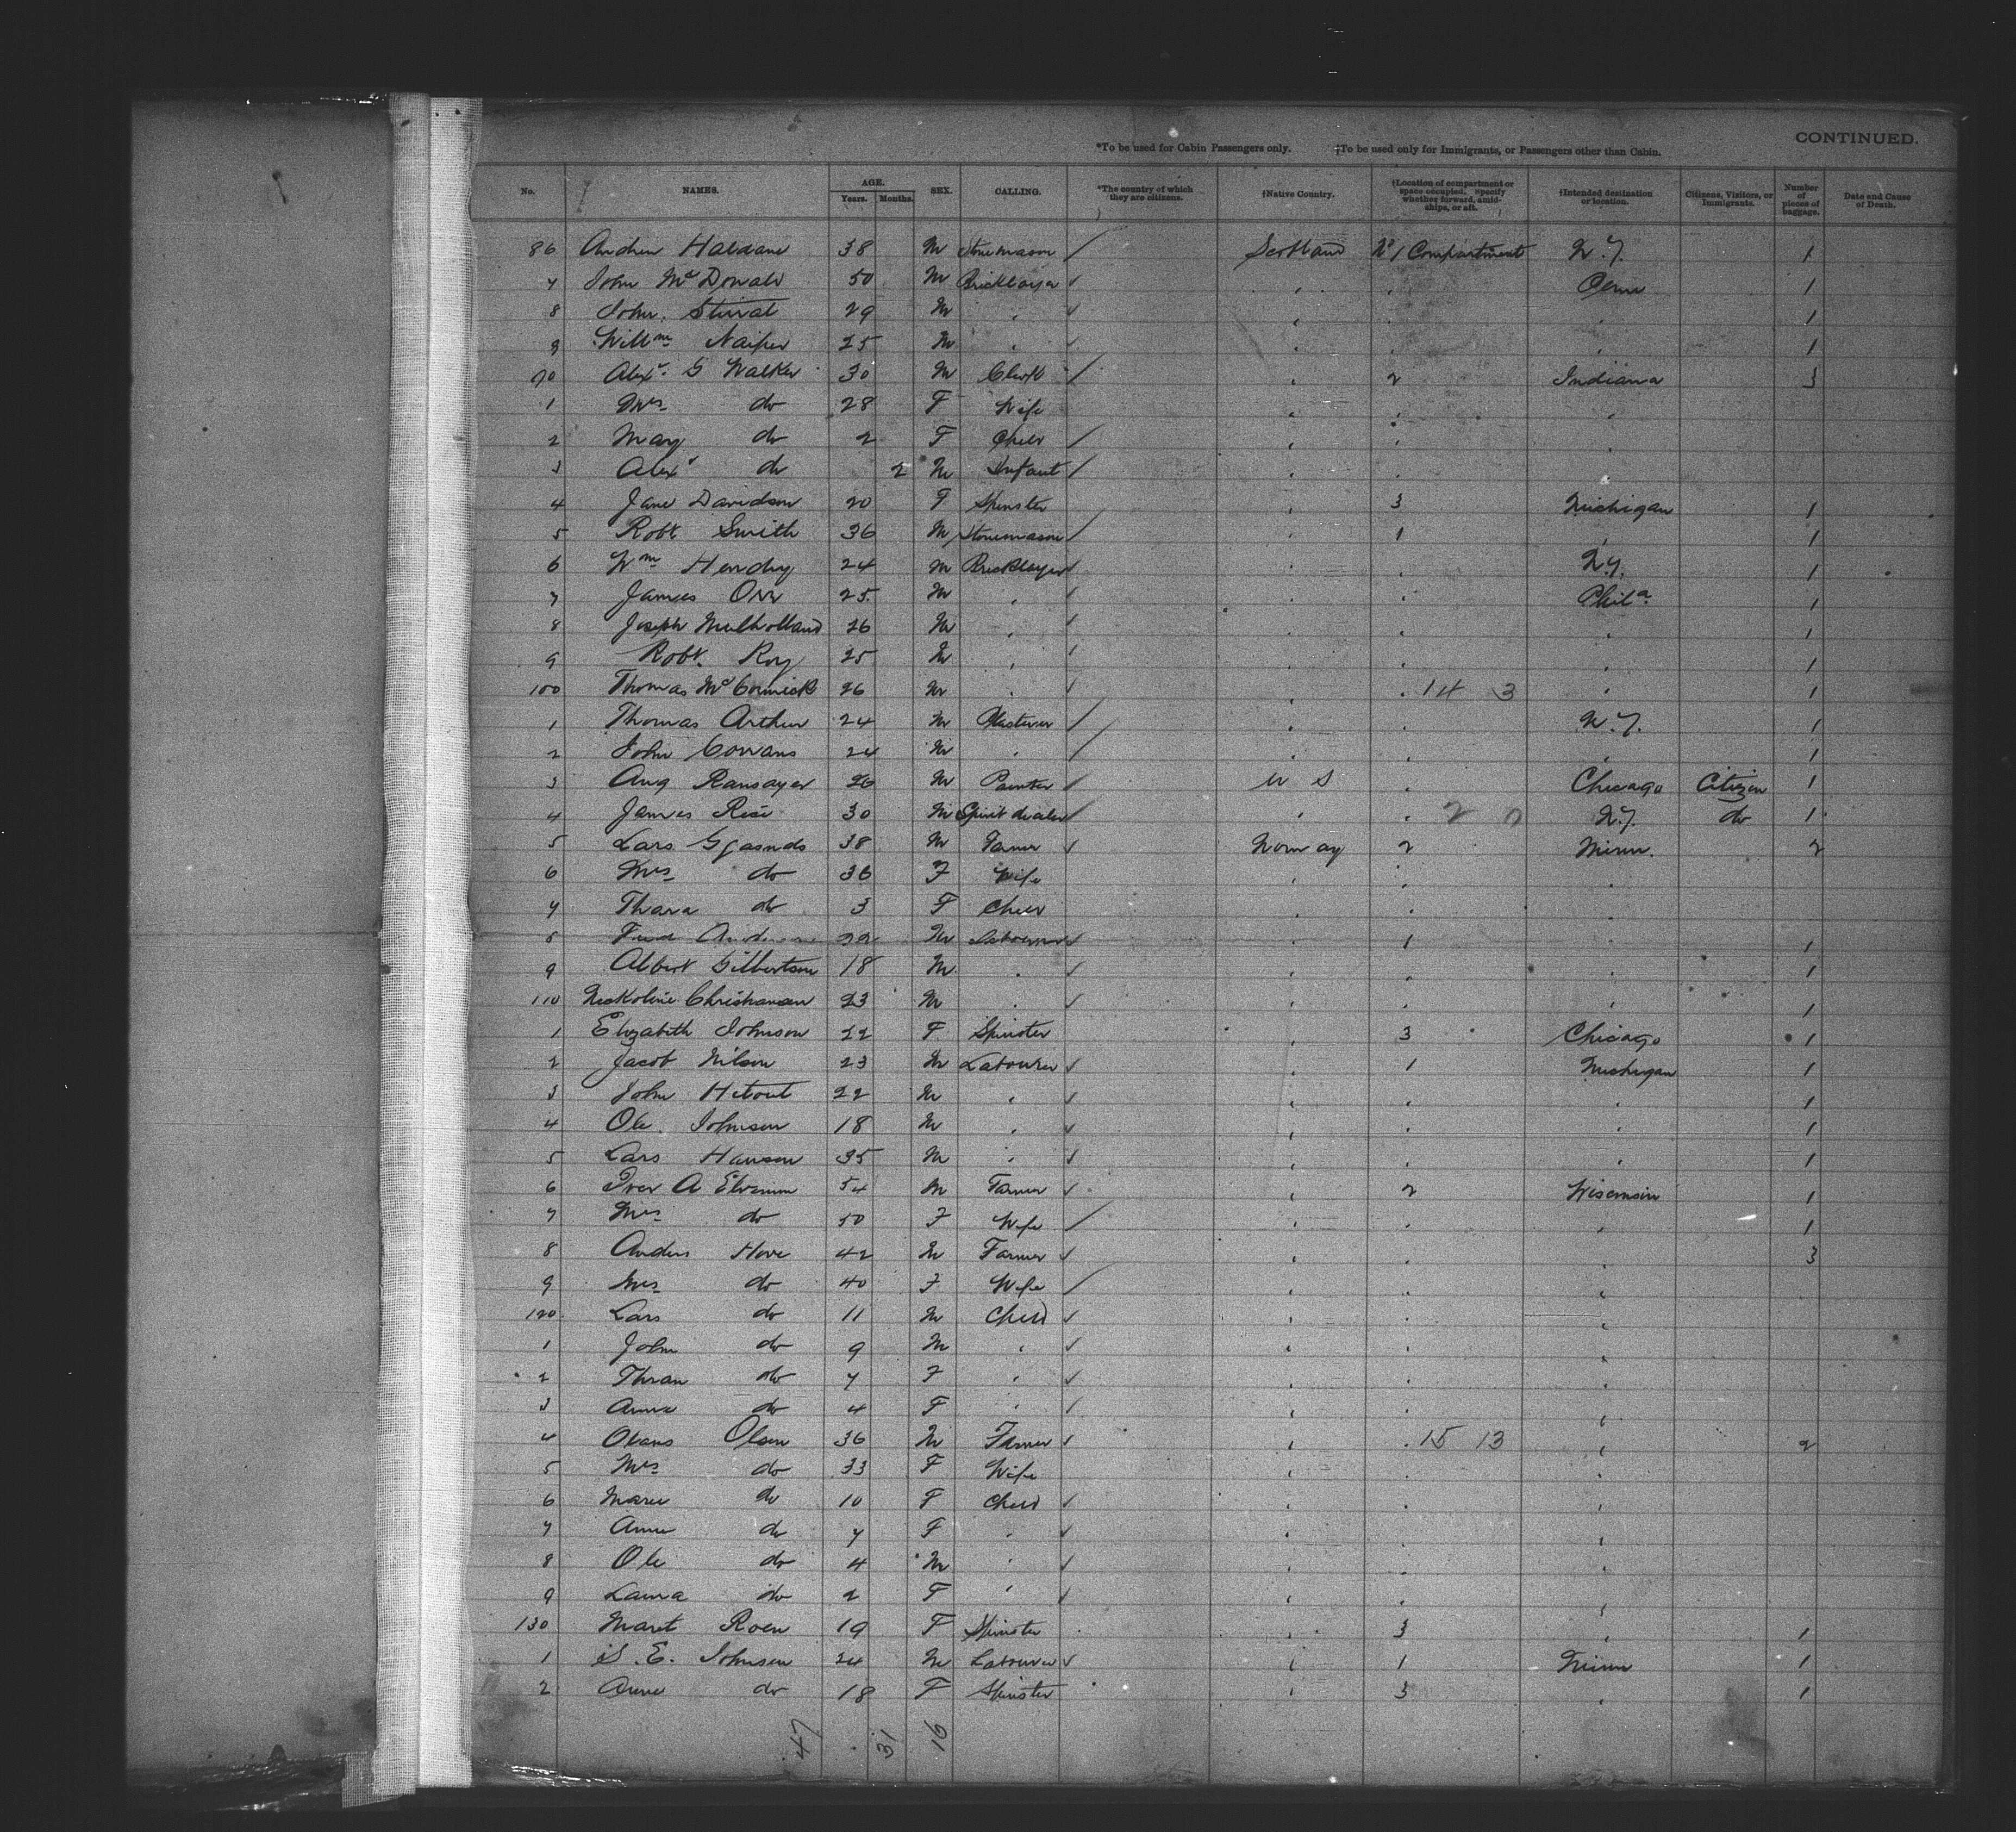 CONTINUED.
*To be used for Cabin Passengers only. †To be used only for Immigrants, or Passengers other than Cabin.
No. NAMES. AGE. Years. Months. SEX. CALLING. *The country of which they are citizens. †Native Country. †Location of compartment or space occupied. Specify whether forward, amidships, or aft. †Intended destination or location. Citizens, Visitors, or Immigrants. Number of pieces of baggage. Date and Cause of Death.
86 Andrew Haldane 38 M Stonemason / Scotland No 1 Compartment N.Y. 1
7 John McDonald 50 M Bricklayer ✓ " " Penn 1
8 John Stirrat 29 M " ✓ " " " 1
9 Willm Naiper 25 M " ✓ " " " 1
90 Alexr G Walker 30 M Clerk / " 2 Indiana 3
1 Mrs do 28 F Wife " " "
2 May do 2 F Child / " "
3 Alexr do 2 M Infant / " " "
4 Jane Davidson 20 F Spinster " 3 Michigan 1
5 Robt Smith 36 M Stonemason / " 1 " 1
6 Wm Hendry 24 M Bricklayer ✓ " " N.Y. 1
7 James Orr 25 M " ✓ " " Phila 1
8 Joseph Mulholland 26 M " ✓ " " " 1
9 Robt. Roy 25 M " ✓ " " 1
100 Thomas McCormick 26 M " ✓ " " 14 3 " 1
1 Thomas Arthur 24 M Plasterer / " " N.Y. 1
2 John Cowans 24 M " / " " " 1
3 Aug Ransayer 26 M Painter ✓ U S " Chicago Citizen 1
4 James Rice 30 M Spirit dealer / " " 2 0 N.Y. do 1
5 Lars Gjasnds 38 M Farmer ✓ Norway 2 Minn. 2
6 Mrs do 36 F Wife " " "
7 Thara do 3 F Child " " "
8 22 M Labourer ✓ " 1 " 1
9 Albert Gilbertson 18 M " ✓ " " 1
110 Neckoline Christiansen 23 M " ✓ " " " 1
1 Elizabeth Johnson 22 F Spinster " 3 Chicago 1
2 Jacob Nilson 23 M Labourer ✓ " 1 Michigan 1
3 John Hetout 22 M " ✓ " " " 1
4 Ole Johnson 18 M " ✓ " " " 1
5 Lars Hanson 35 M " ✓ " " " 1
6 Iver A 54 M Farmer ✓ " 2 Wisconsin 1
7 Mrs do 50 F Wife / " " " 1
8 Anders Hove 42 M Farmer ✓ " " " 3
9 Mrs do 40 F Wife / " " "
120 Lars do 11 M Child ✓ " " "
1 John do 9 M " ✓ " " "
2 Thran do 7 F " ✓ " " "
3 Anna do 4 F " ✓ " " "
4 Olaus Olsen 36 M Farmer ✓ " " 15 13 " 2
5 Mrs do 33 F Wife " " "
6 Marie do 10 F Child ✓ " " "
7 Anne do 7 F " ✓ " " "
8 Ole do 4 M " ✓ " " "
9 Laura do 2 F " ✓ " " "
130 Maret Roen 19 F Spinster " 3 " 1
1 S. E. Johnsen 24 M Labourer ✓ " 1 Minn 1
2 Anne do 18 F Spinster " 3 " 1
47 31 16